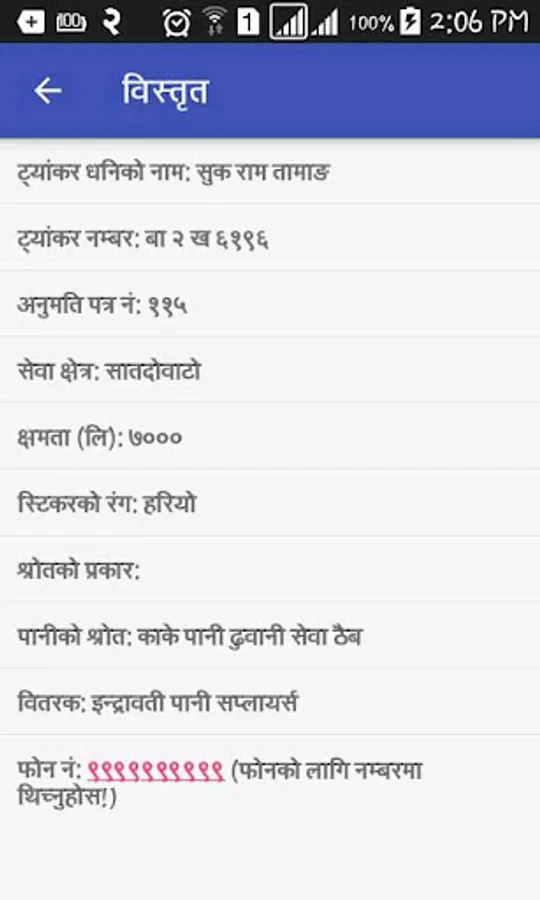 100%
2:06 PM
विस्तृत
ट्यांकर धनिको नाम: सुक राम तामाङ
ट्यांकर नम्बर: बा २ ख ६१९६
अनुमति पत्र नं: ११५
सेवा क्षेत्र: सातदोवाटो
क्षमता (लि): ७०००
स्टिकरको रंग: हरियो
श्रोतको प्रकार:
पानीको श्रोत: काके पानी ढुवानी सेवा ठैब
वितरक: इन्द्रावती पानी सप्लायर्स
फोन नं: ९९९९९९९९९९ (फोनको लागि नम्बरमा
थिच्नुहोस!)